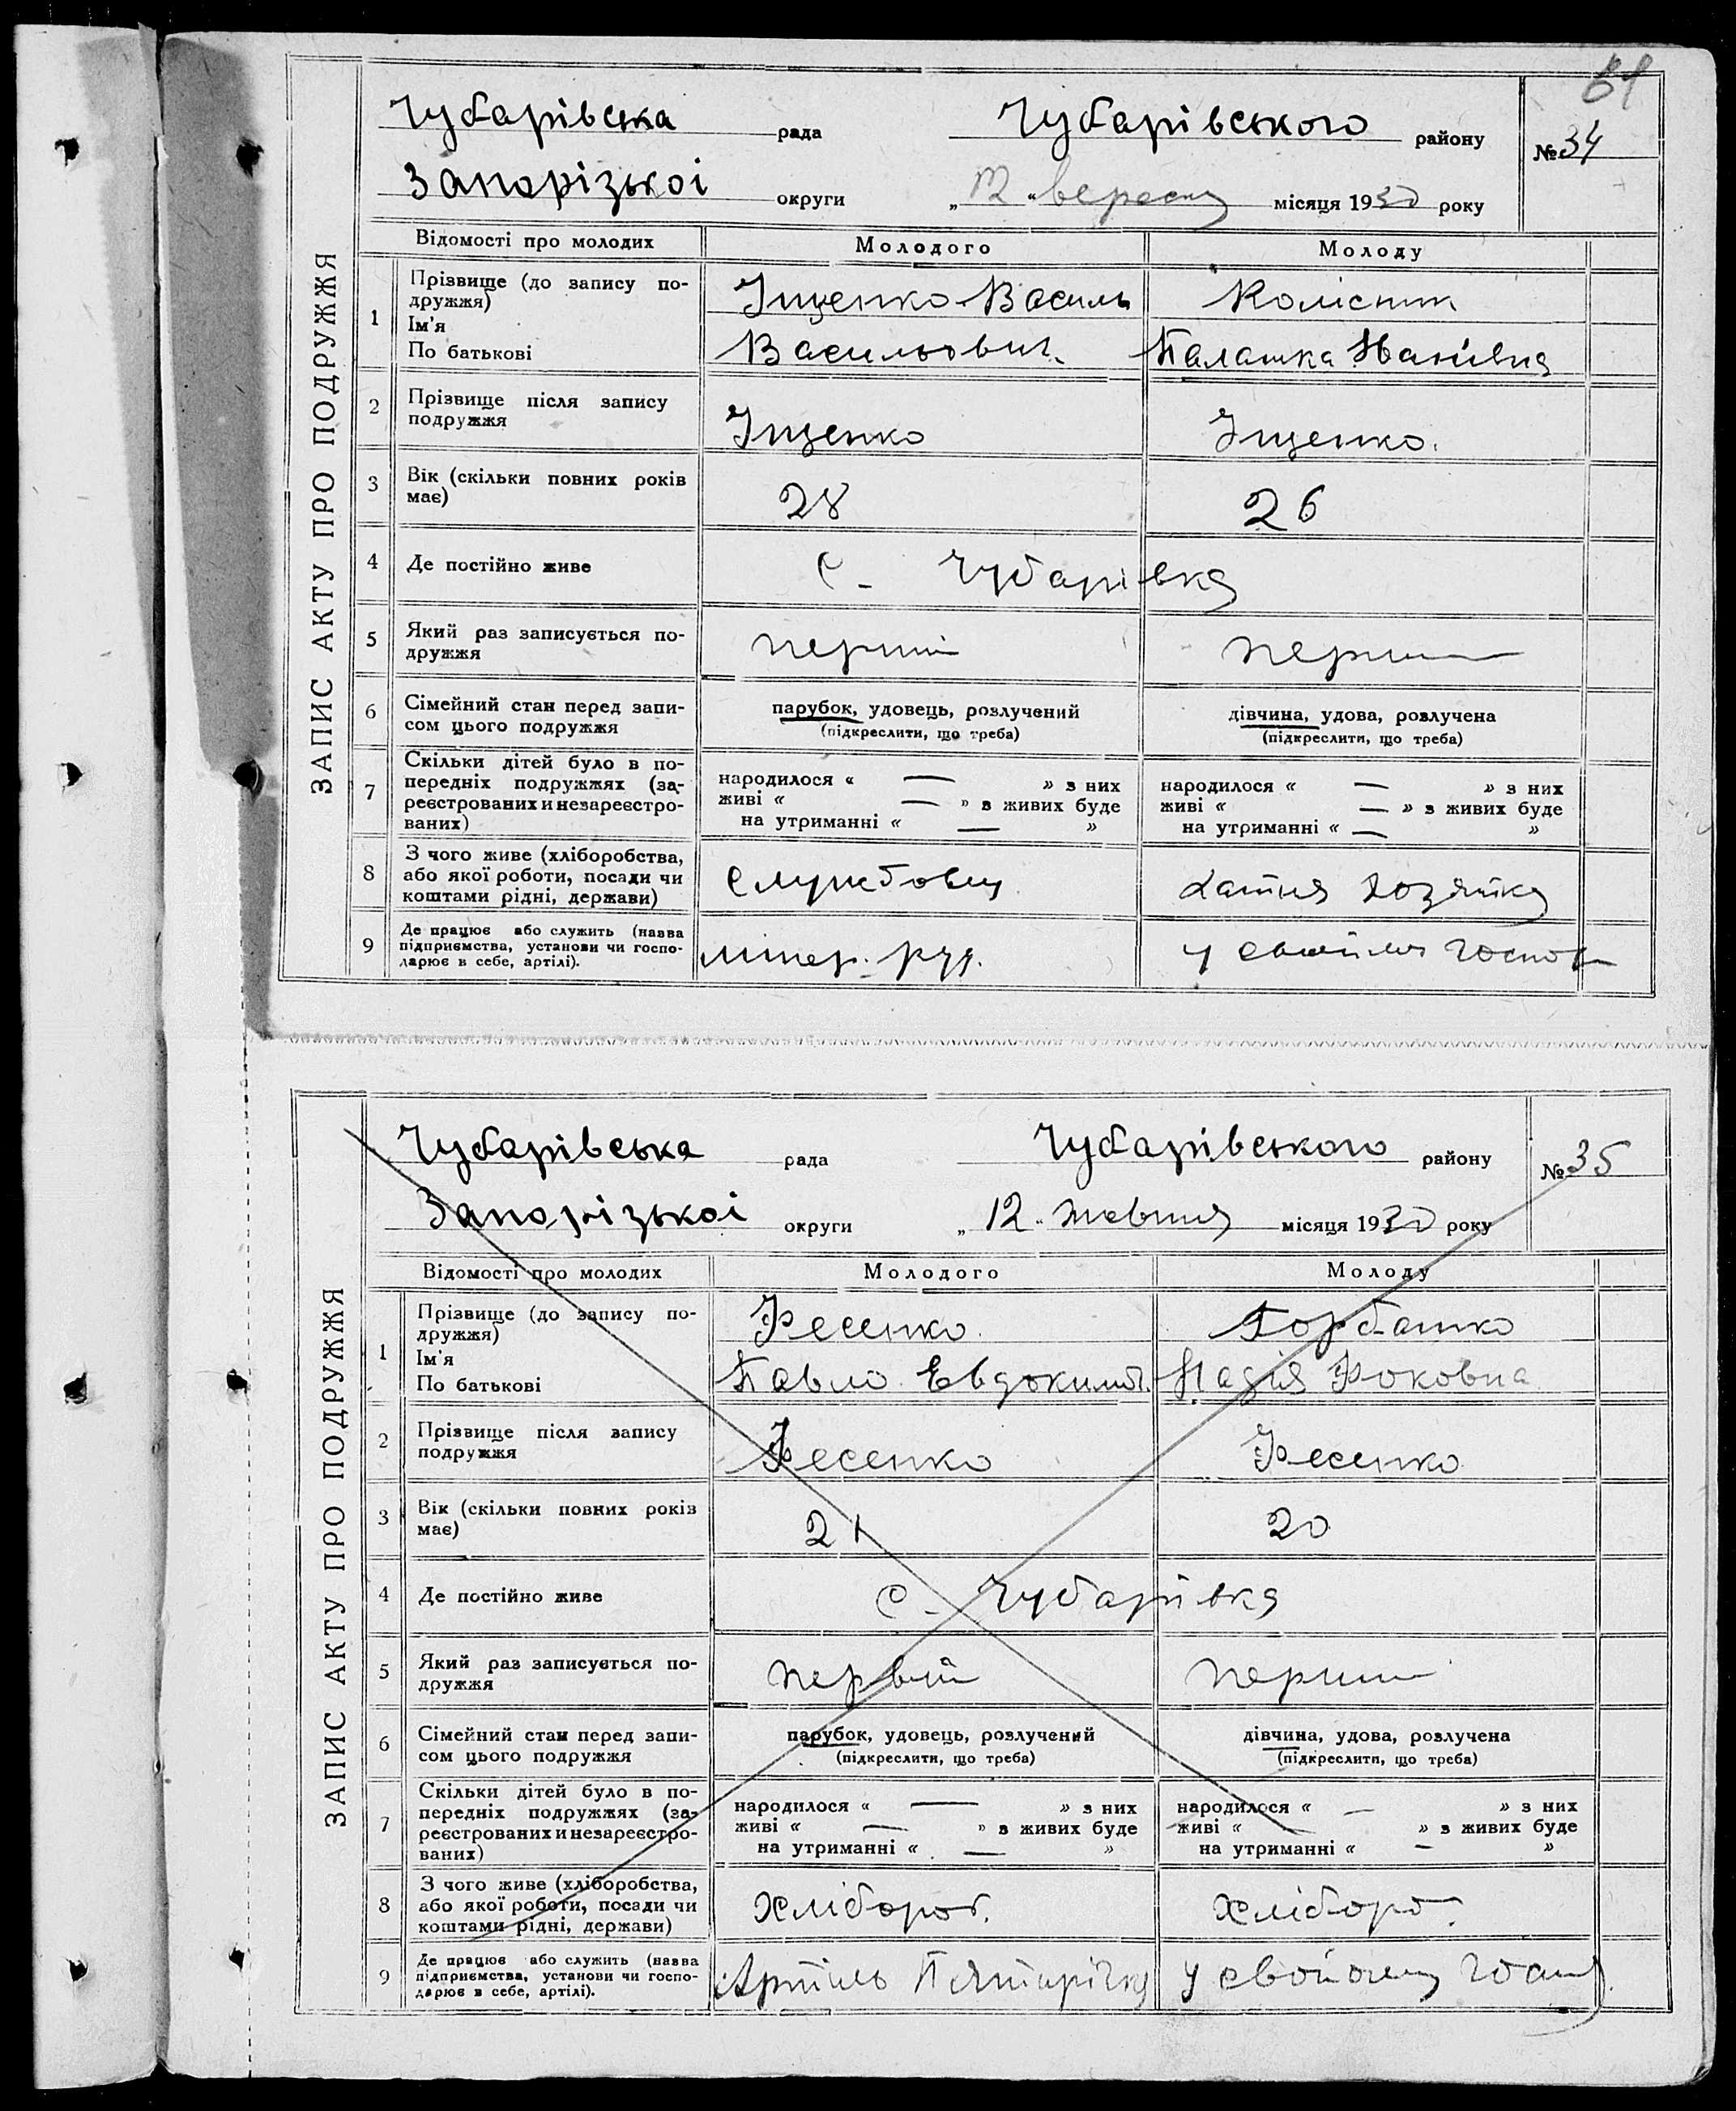 ЗАПИС АКТУ ПРО ПОДРУЖЖЯ
Чубарівська рада Чубарівського району №34
Запорізької округи „12“ вересня місяця 1930 року
Відомості про молодих Молодого Молоду
1 Прізвище (до запису по-
дружжя) Іщенко Василь Колісник
Ім'я
По батькові Васильович Палашка Іванівна
2 Прізвище після запису
подружжя Іщенко Іщенко.
3 Вік (скільки повних років
має) 28 26
4 Де постійно живе с. Чубарівка
5 Який раз записується по-
дружжя перший перший
6 Сімейний стан перед запи-
сом цього подружжя парубок, удовець, розлучений дівчина, удова, розлучена
(підкреслити, що треба) (підкреслити, що треба)
7 Скільки дітей було в по-
передніх подружжях (за-
реєстрованих и незареєстро-
ваних)
народилося « — » з них народилося « — » з них
живі « — » з живих буде живі « — » з живих буде
на утриманні « — » на утриманні « — »
8 З чого живе (хліборобства,
або якої роботи, посади чи
коштами рідні, держави) службовец хатня хозяйка
9 Де працює або служить (назва
підприємства, установи чи госпо-
дарює в себе, артілі). у своїм госпо
ЗАПИС АКТУ ПРО ПОДРУЖЖЯ
Чубарівська рада Чубарівського району №35
Запорізької округи „12“ жовтня місяця 1930 року
Відомості про молодих Молодого Молоду
1 Прізвище (до запису по-
дружжя) Фесенко Горбатко
Ім'я
По батькові Павло Евдоким. Надія Фоковна
2 Прізвище після запису
подружжя Фесенко Фесенко
3 Вік (скільки повних років
має) 21 20
4 Де постійно живе с. Чубарівка
5 Який раз записується по-
дружжя первий перший
6 Сімейний стан перед запи-
сом цього подружжя парубок, удовець, розлучений дівчина, удова, розлучена
(підкреслити, що треба) (підкреслити, що треба)
7 Скільки дітей було в по-
передніх подружжях (за-
реєстрованих и незареєстро-
ваних)
народилося « — » з них народилося « — » з них
живі « — » з живих буде живі « — » з живих буде
на утриманні « — » на утриманні « — »
8 З чого живе (хліборобства,
або якої роботи, посади чи
коштами рідні, держави) хлібороб. хлібороб.
9 Де працює або служить (назва
підприємства, установи чи госпо-
дарює в себе, артілі). Артиль Пятирічка у свойому